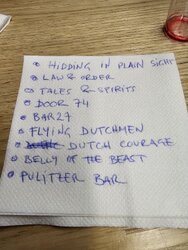 HIDDING IN PLAIN SIGHT
LAW & ORDER
TALES & SPIRITS
DOOR 74
BAR 27
FLYING DUTCHMEN
DUTCH COURAGE
BELLY OF THE BEAST
PULITZER BAR